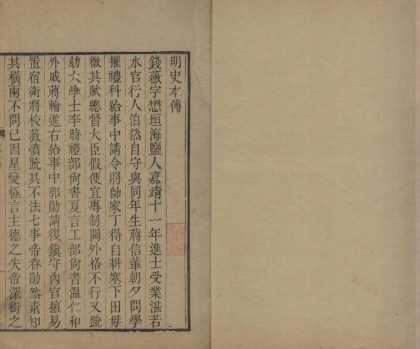 明史本傳
錢薇字懋垣海鹽人嘉靖十一年進士受業湛若
水官行人泊然自守與同年生蔣信輩朝夕問學
擢禮科給事中請令將帥家丁得自耕塞下田毋
徵其賦總督大臣假便宜專制閫外格不行又疏
劾大學士李時禮部尚書夏言工部尚書溫仁和
外戚蔣輪進右給事中郭勛請復鎮守內官擅易
置宿衛將校薇憤疏其不法七事帝眷勛然素知
其橫兩不問已因星變極言主德之失帝深銜之